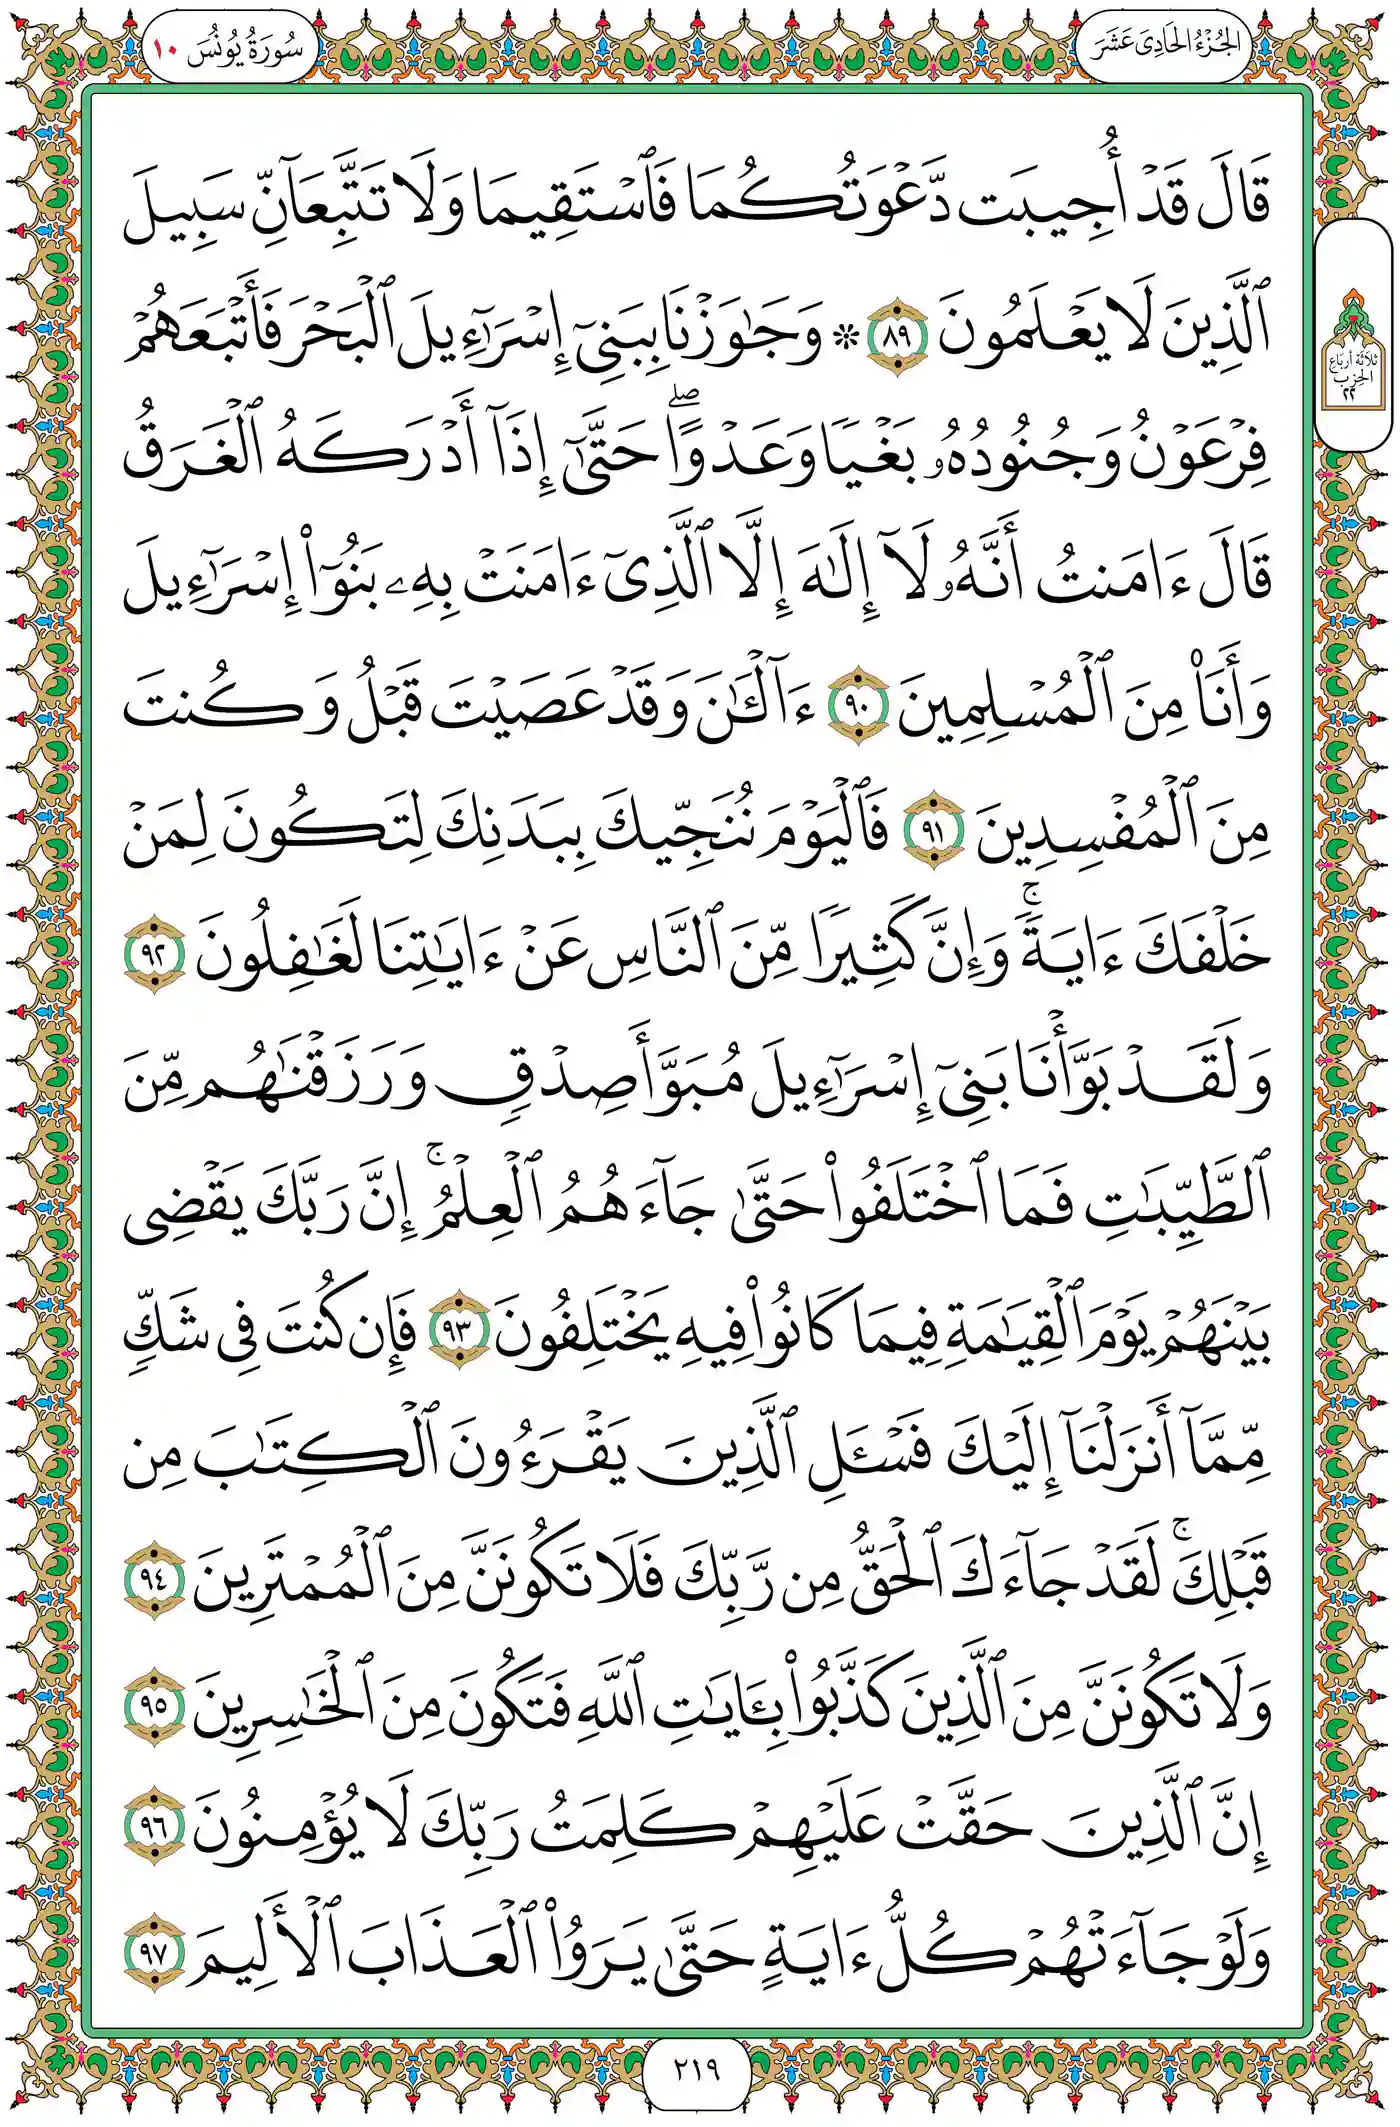 الجُزْءُ الحَادِىَ عَشَرَ
سُورَةُ يُونُسَ ١٠
قَالَ قَدْ أُجِيبَت دَّعْوَتُكُمَا فَٱسْتَقِيمَا وَلَا تَتَّبِعَآنِّ سَبِيلَ
ٱلَّذِينَ لَا يَعْلَمُونَ ٨٩ * وَجَٰوَزْنَا بِبَنِىٓ إِسْرَٰٓءِيلَ ٱلْبَحْرَ فَأَتْبَعَهُمْ
ثلَاثَة أربَاع
الحِزب
٢٢
فِرْعَوْنُ وَجُنُودُهُۥ بَغْيًا وَعَدْوًا ۖ حَتَّىٰٓ إِذَآ أَدْرَكَهُ ٱلْغَرَقُ
قَالَ ءَامَنتُ أَنَّهُۥ لَآ إِلَٰهَ إِلَّا ٱلَّذِىٓ ءَامَنَتْ بِهِۦ بَنُوٓا۟ إِسْرَٰٓءِيلَ
وَأَنَا۠ مِنَ ٱلْمُسْلِمِينَ ٩٠ ءَآلْـَٰٔنَ وَقَدْ عَصَيْتَ قَبْلُ وَكُنتَ
مِنَ ٱلْمُفْسِدِينَ ٩١ فَٱلْيَوْمَ نُنَجِّيكَ بِبَدَنِكَ لِتَكُونَ لِمَنْ
خَلْفَكَ ءَايَةً ۚ وَإِنَّ كَثِيرًا مِّنَ ٱلنَّاسِ عَنْ ءَايَٰتِنَا لَغَٰفِلُونَ ٩٢
وَلَقَدْ بَوَّأْنَا بَنِىٓ إِسْرَٰٓءِيلَ مُبَوَّأَ صِدْقٍ وَرَزَقْنَٰهُم مِّنَ
ٱلطَّيِّبَٰتِ فَمَا ٱخْتَلَفُوا۟ حَتَّىٰ جَآءَهُمُ ٱلْعِلْمُ ۚ إِنَّ رَبَّكَ يَقْضِى
بَيْنَهُمْ يَوْمَ ٱلْقِيَٰمَةِ فِيمَا كَانُوا۟ فِيهِ يَخْتَلِفُونَ ٩٣ فَإِن كُنتَ فِى شَكٍّ
مِّمَّآ أَنزَلْنَآ إِلَيْكَ فَسْـَٔلِ ٱلَّذِينَ يَقْرَءُونَ ٱلْكِتَٰبَ مِن
قَبْلِكَ ۚ لَقَدْ جَآءَكَ ٱلْحَقُّ مِن رَّبِّكَ فَلَا تَكُونَنَّ مِنَ ٱلْمُمْتَرِينَ ٩٤
وَلَا تَكُونَنَّ مِنَ ٱلَّذِينَ كَذَّبُوا۟ بِـَٔايَٰتِ ٱللَّهِ فَتَكُونَ مِنَ ٱلْخَٰسِرِينَ ٩٥
إِنَّ ٱلَّذِينَ حَقَّتْ عَلَيْهِمْ كَلِمَتُ رَبِّكَ لَا يُؤْمِنُونَ ٩٦
وَلَوْ جَآءَتْهُمْ كُلُّ ءَايَةٍ حَتَّىٰ يَرَوُا۟ ٱلْعَذَابَ ٱلْأَلِيمَ ٩٧
٢١٩